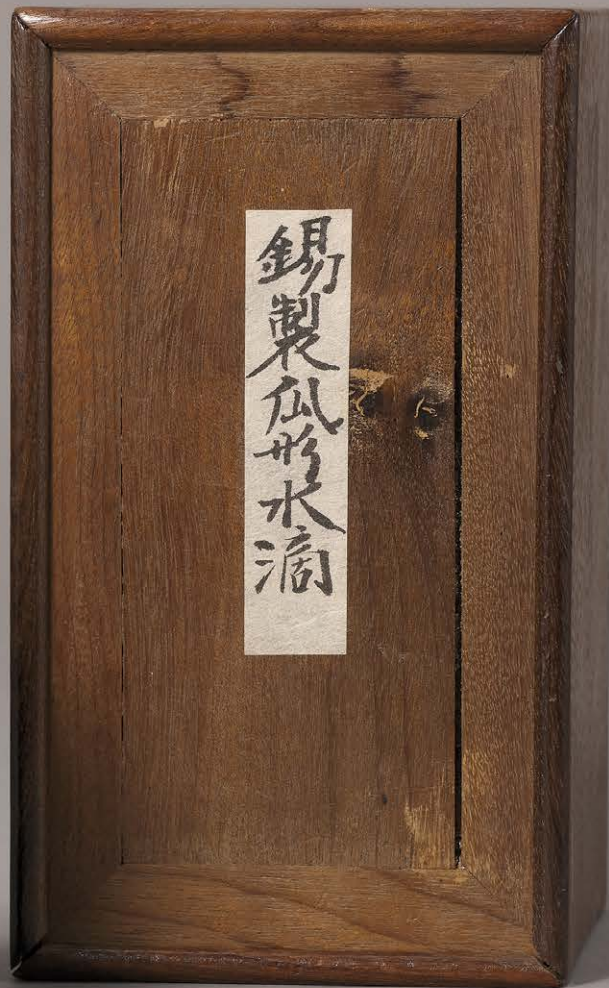 錫製瓜形水滴